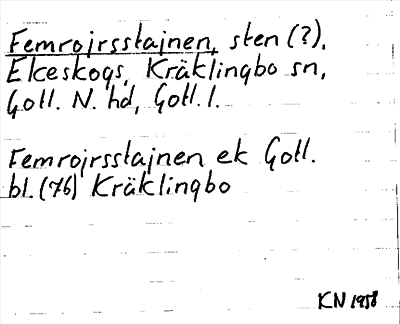 Femrojrsstajnen, sten (?),
Ekeskogs, Kräklingbo sn,
Gotl. N. hd, Gotl. l.
Femrojrsstajnen ek Gotl.
bl. (76) Kräklingbo
KN 1958